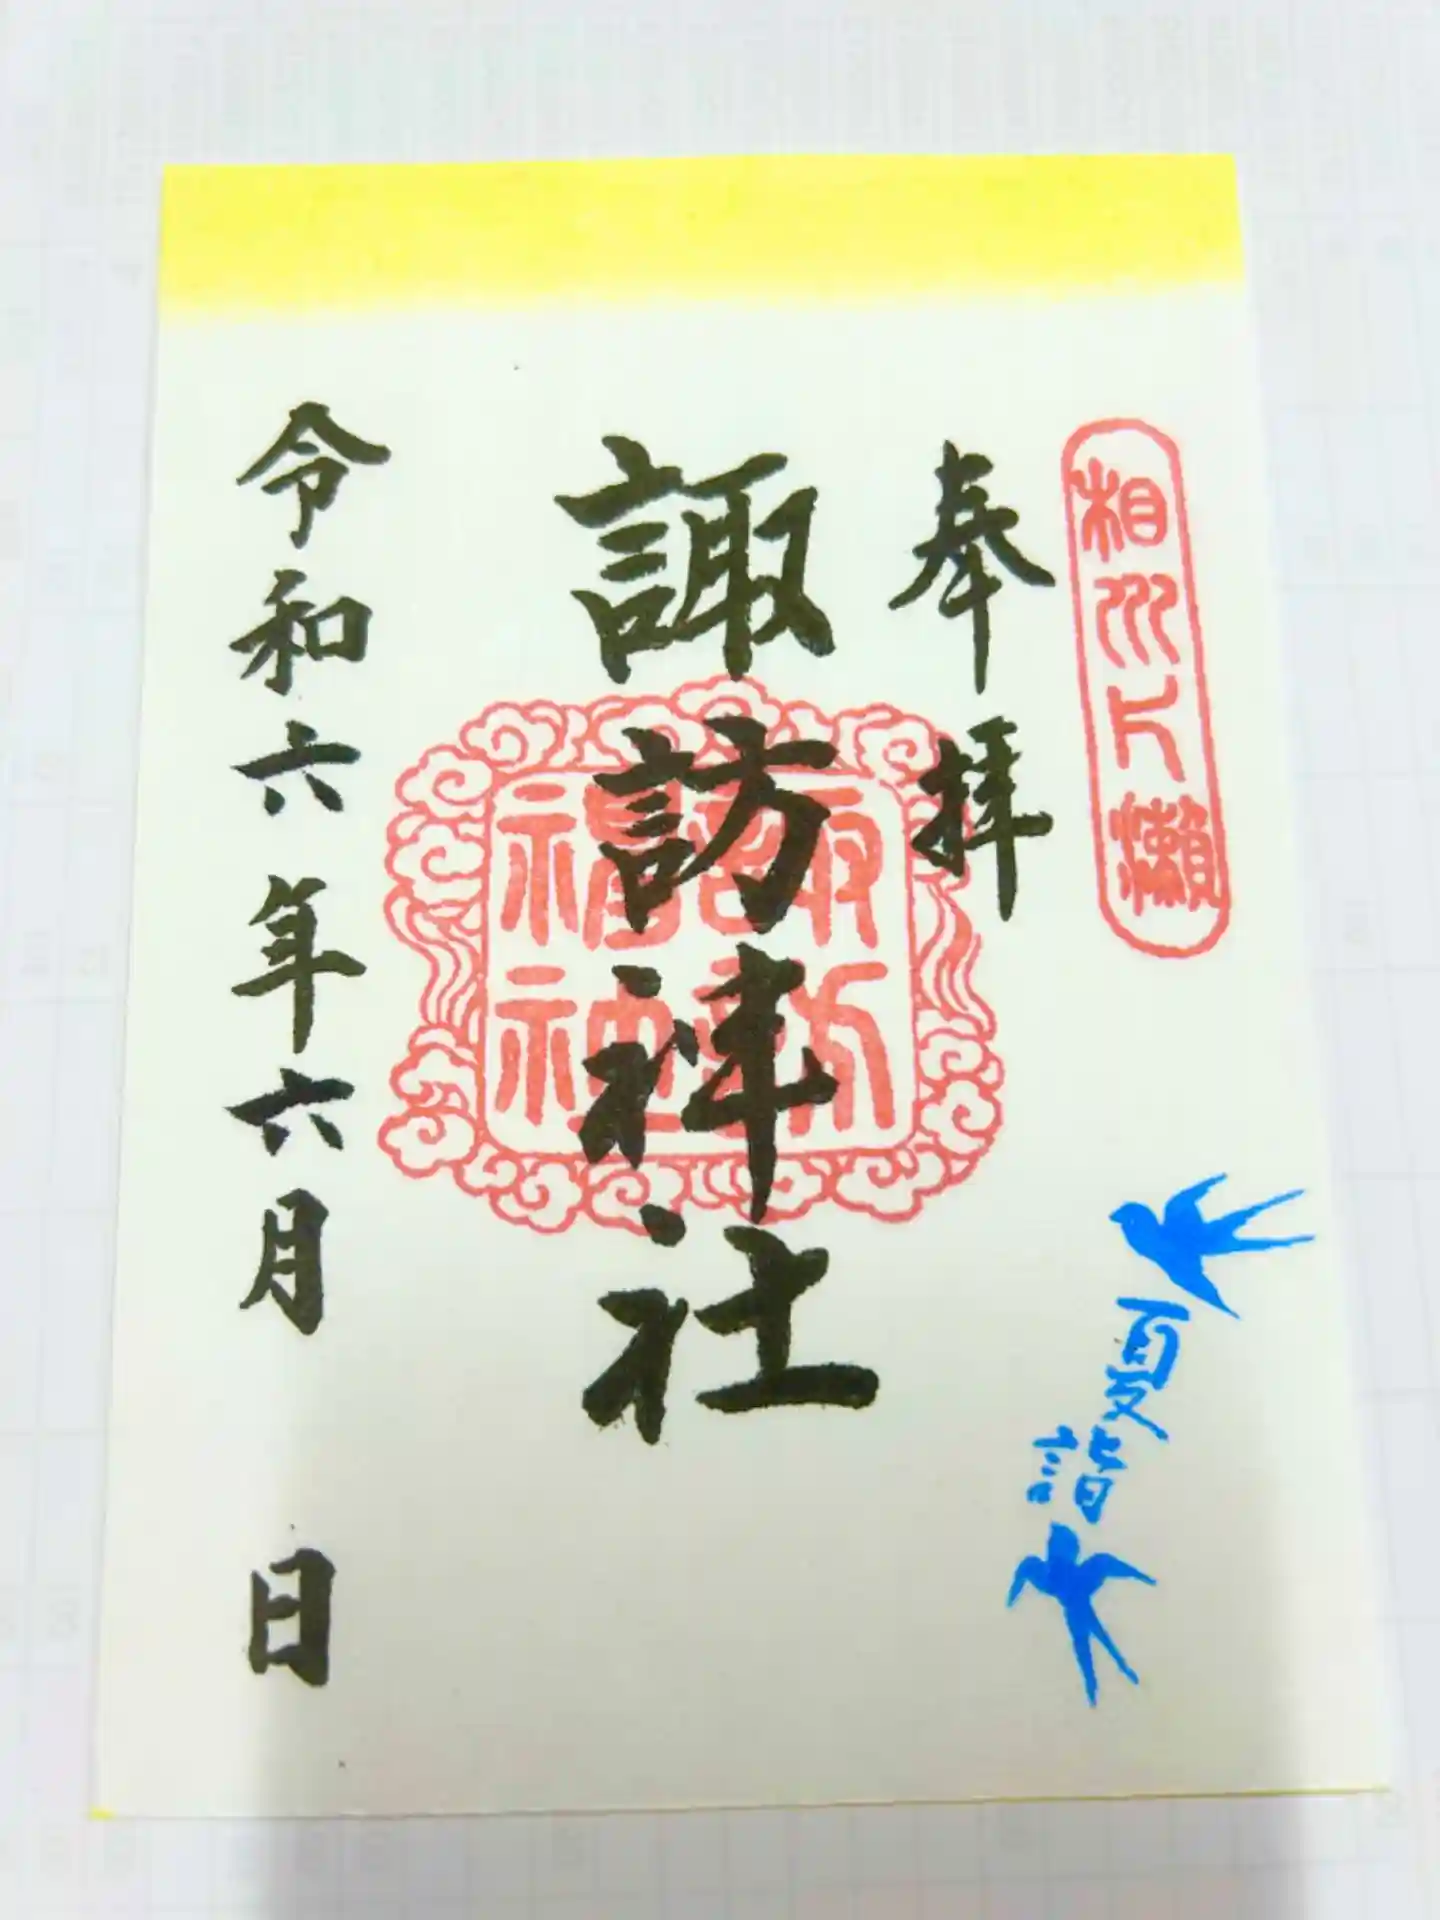 相州片瀬
奉拝
夏詣
諏訪神社
令和六年六月 日